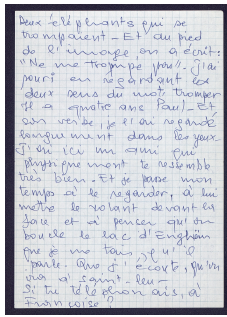 Deux éléphants qui se
trompaient - Et au pied
de l'image on a écrit :
"Ne me trompe pas". J'ai
souri en regardant les
deux sens du mot tromper
Il a quatre ans Paul - Et
son verbe, je l'ai regardé
longuement dans les yeux
J'ai ici un ami qui
physiquement te ressemble
très bien. Et je passe mon
temps à le regarder, à lui
mettre le volant devant la
face et à penser qu'on
boucle le lac d'Enghien
que je me tais, qu'il
parle. Que j'écoute, qu'on
va à Saint-Leu -
Si tu téléphonais, à
Françoise ?